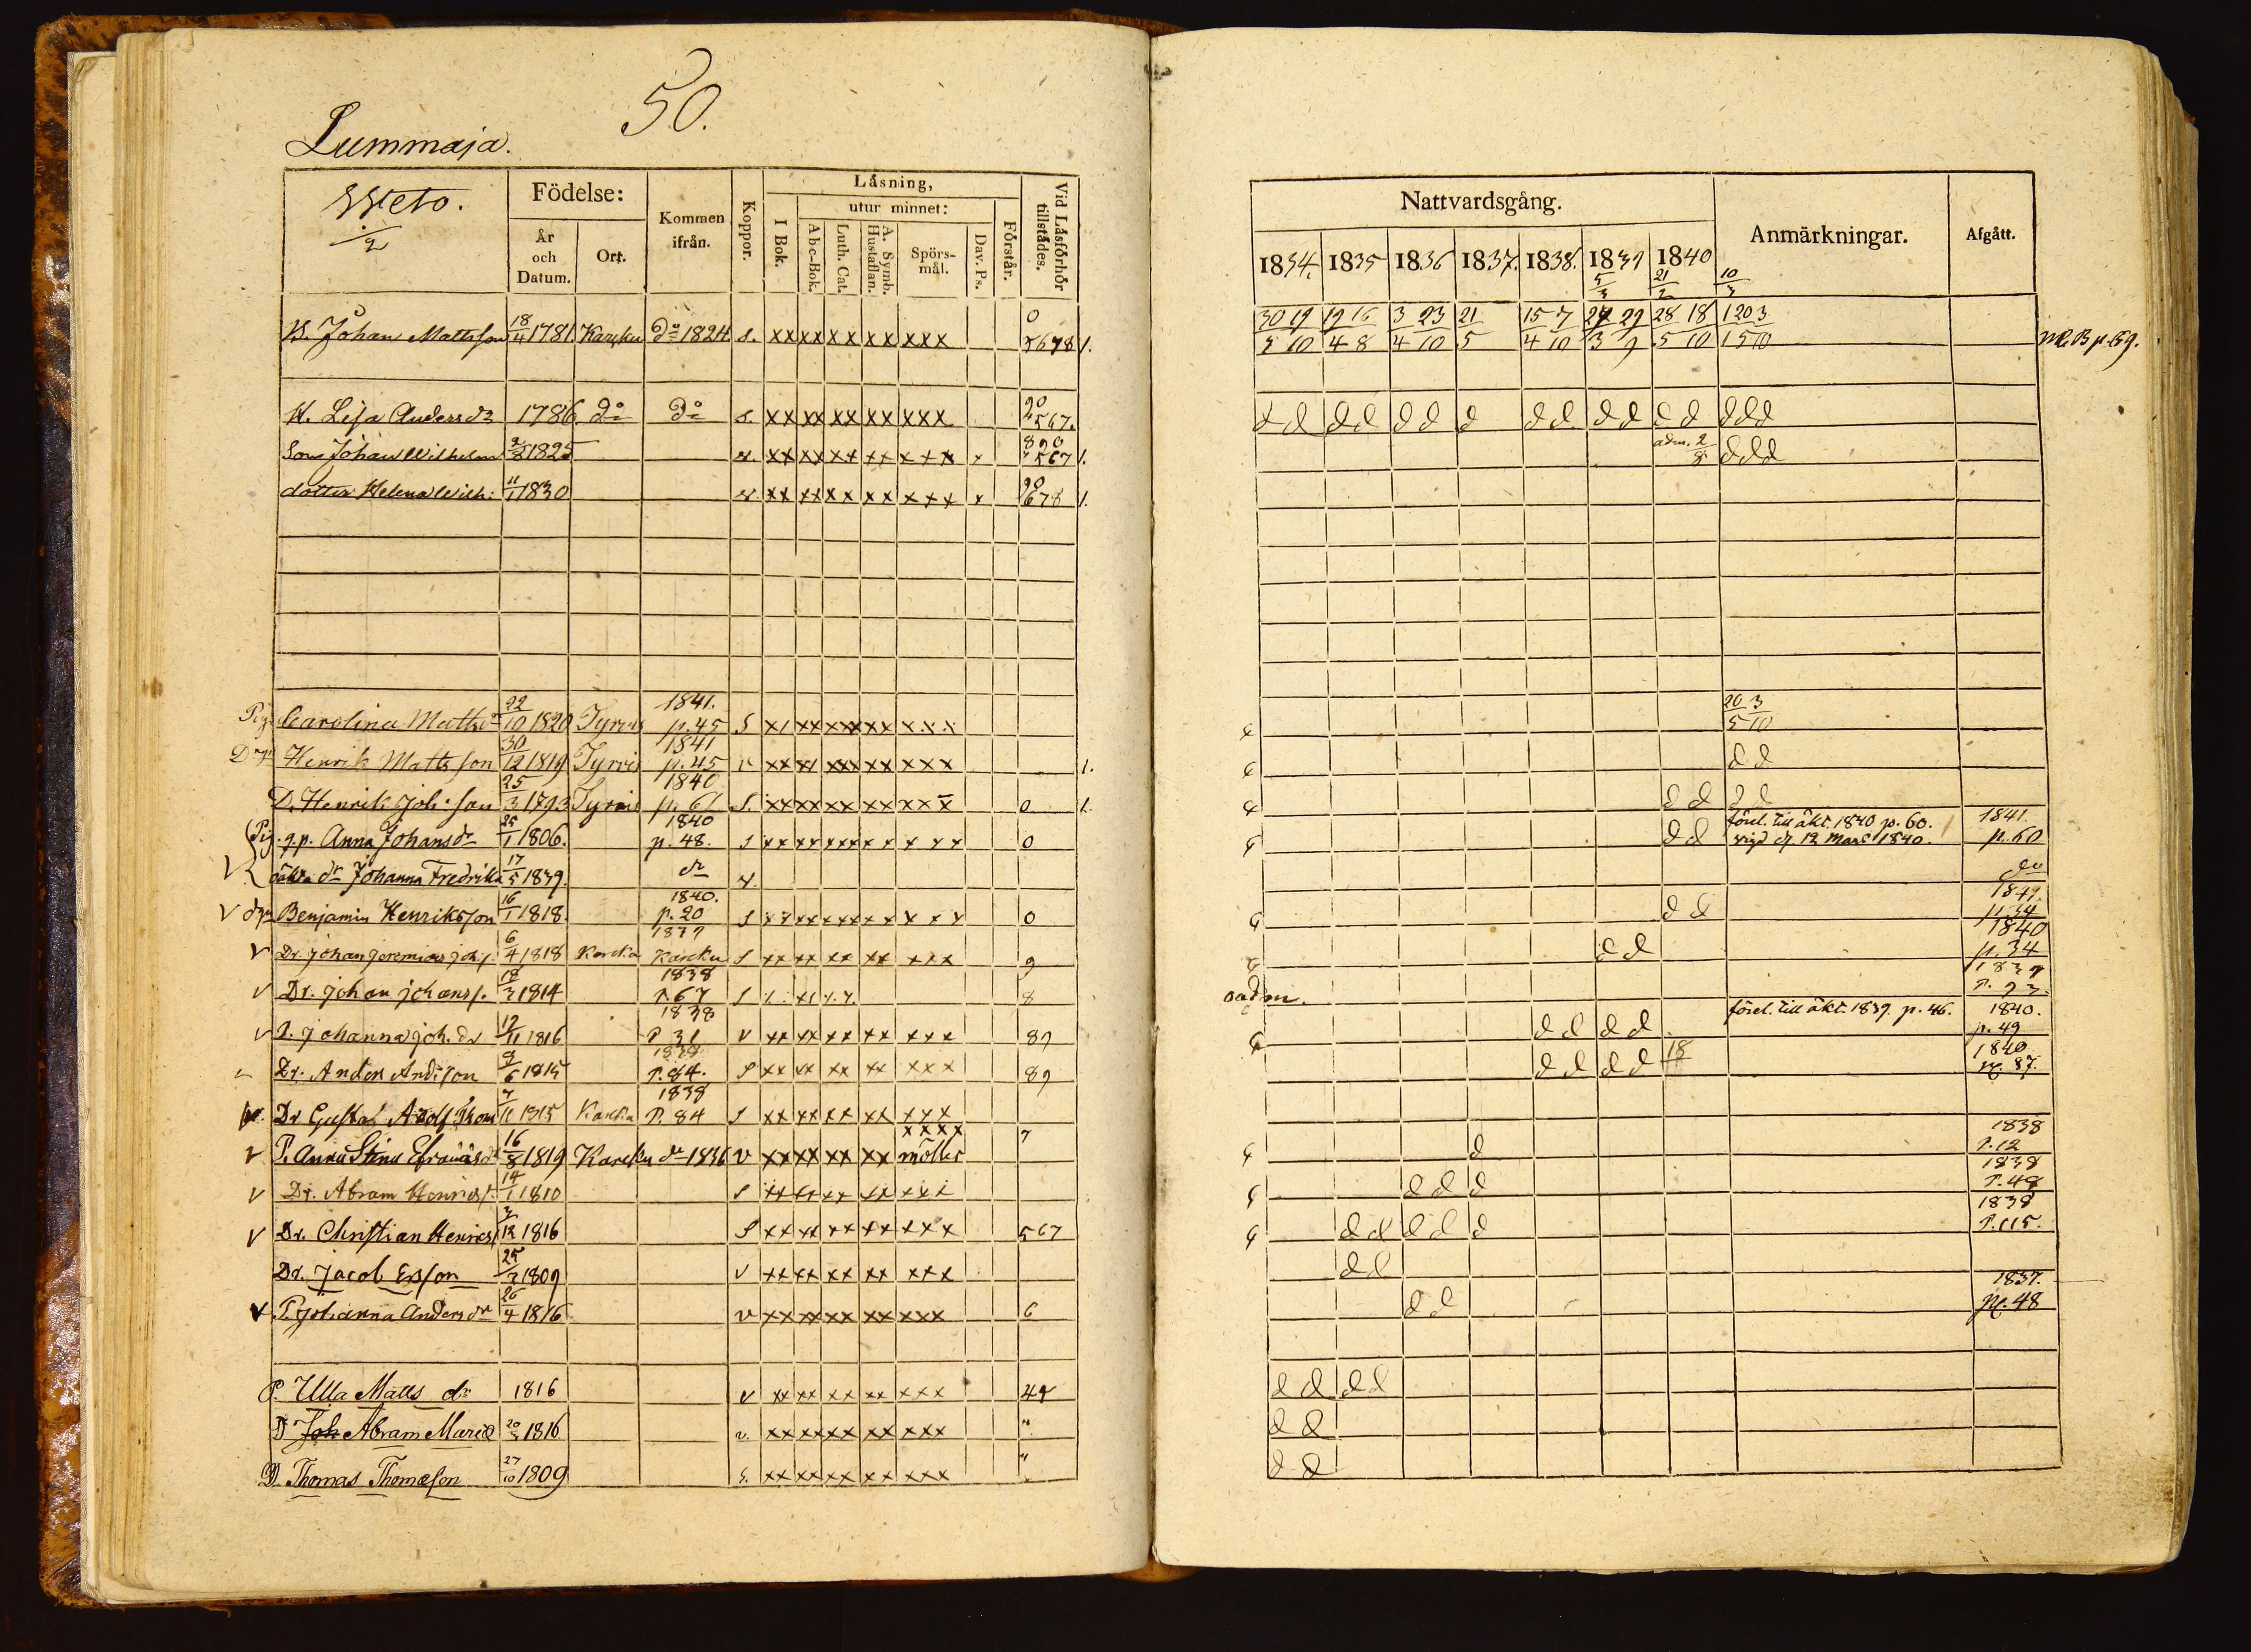 50.
Lummaja.
Födelse:
Kommen ifrån.
Koppor.
Läsning,
utur minnet:
I Bok.
Abc-Bok.
Luth. Cat.
A. Symb. Hustaflan.
Spörs-mål.
Dav. Ps.
Förstår.
Vid Läsförhör tillstädes.
År och Datum.
Ort.
B. Johan Mattsson 18/4 1781. Karcku do 1824. s. xx xx xx xx xxx
H. Lisa Andersdr 1786 do do s. xx xx xx xx xxx 567.
Son Johan Wilhelm 1825 v. xx xx xx xx xxx x 567 1.
dotter Helena Wilh: 11/1 1830 v xx xx xx xx xxx x 678 1.
Pig. Carolina Mattsdr 22/10 1820 Tyrvis 1841. p. 45 S xx xx xx xx xxx
Henrik Mattsson 30/12 1819 Tyrvis 1841 p. 45 v xx xx xx xx xxx 1.
D. Henrik Joh:son 25/3 1793 Tyrvis 1840 p. 61 S. xx xx xx xx xxx 0 1.
Pig. q.p. Anna Johansdr 25/1 1806. 1840 p. 48. s xx xx xx xx x x x 0
oäkta dr Johanna Fredrika 17/5 1839. do v.
V Benjamin Henriksson 16/1 1818. 1840. p. 20 s xx xx xx xx x x x 0
V Dr. Johan Jeremias Joh.s. 6/4 1818 Karcku Karcku s xx xx xx xx xxx 9
V Dr. Johan Johanss. 18/3 1814 1838 P. 67 s 8
V P. Johanna Joh. dr 12/11 1816 1838 P. 31 v xx xx xx xx xxx 89
Dr. Anders Andisson 9/6 1815 P. 84. s xx xx xx xx xxx 89
Dr. Gustaf Adolf Thom 7/11 1815 Karcku 1838 P. 84 s xx xx xx xx xxx
V P. Anna Stina Efraimsdr 16/8 1819 Karcku do 1836 v xx xx xx xx xxxx möller 7
V Dr. Abram Henrics. 14/1 1810 s xx xx xx xx xxx
V Dr. Christian Henrics. 3/12 1816 s xx xx xx xx xxx 567
Dr. Jacob Ersson 25/3 1809 v xx xx xx xx xxx
V P. Johanna Andersdr 26/4 1816 v xx xx xx xx xxx 6
P. Ulla Matts dr 1816 v xx xx xx xx xxx
D Joh Abram 1816 v. xx xx xx xx xxx "
D. Thomas Thomasson 27/10 1809 s. xx xx xx xx xxx "
Nattvardsgång.
Anmärkningar.
Afgått.
1834. 1835 1836 1837. 1838. 1839 1840
5/3 21/2 10/3
30 19 19 16 3 23 21 15 7 28 18
5 10 4 8 4 10 5 4 10 3 9 5 10
p. 59.
d d d d d d d d d d d d d d ddd
adm. 2/8 ddd
20 3
5 10
d d
d d d d
d d förel. till äkt. 1840 p. 60. 1841. p. 60
vigd d. 12 Mars 1840.
do
d d p. 34
d d 1840 p. 34
oadm.
d d d d förel. till äkt. 1839. p. 46. 1840. p. 49
d d d d 18 1840 p. 87.
d 1838 P. 12
d d d 1838 P. 48
d d d d d 1838 P. 115.
d d
d d 1837. p. 48
d d d d
d d
d d